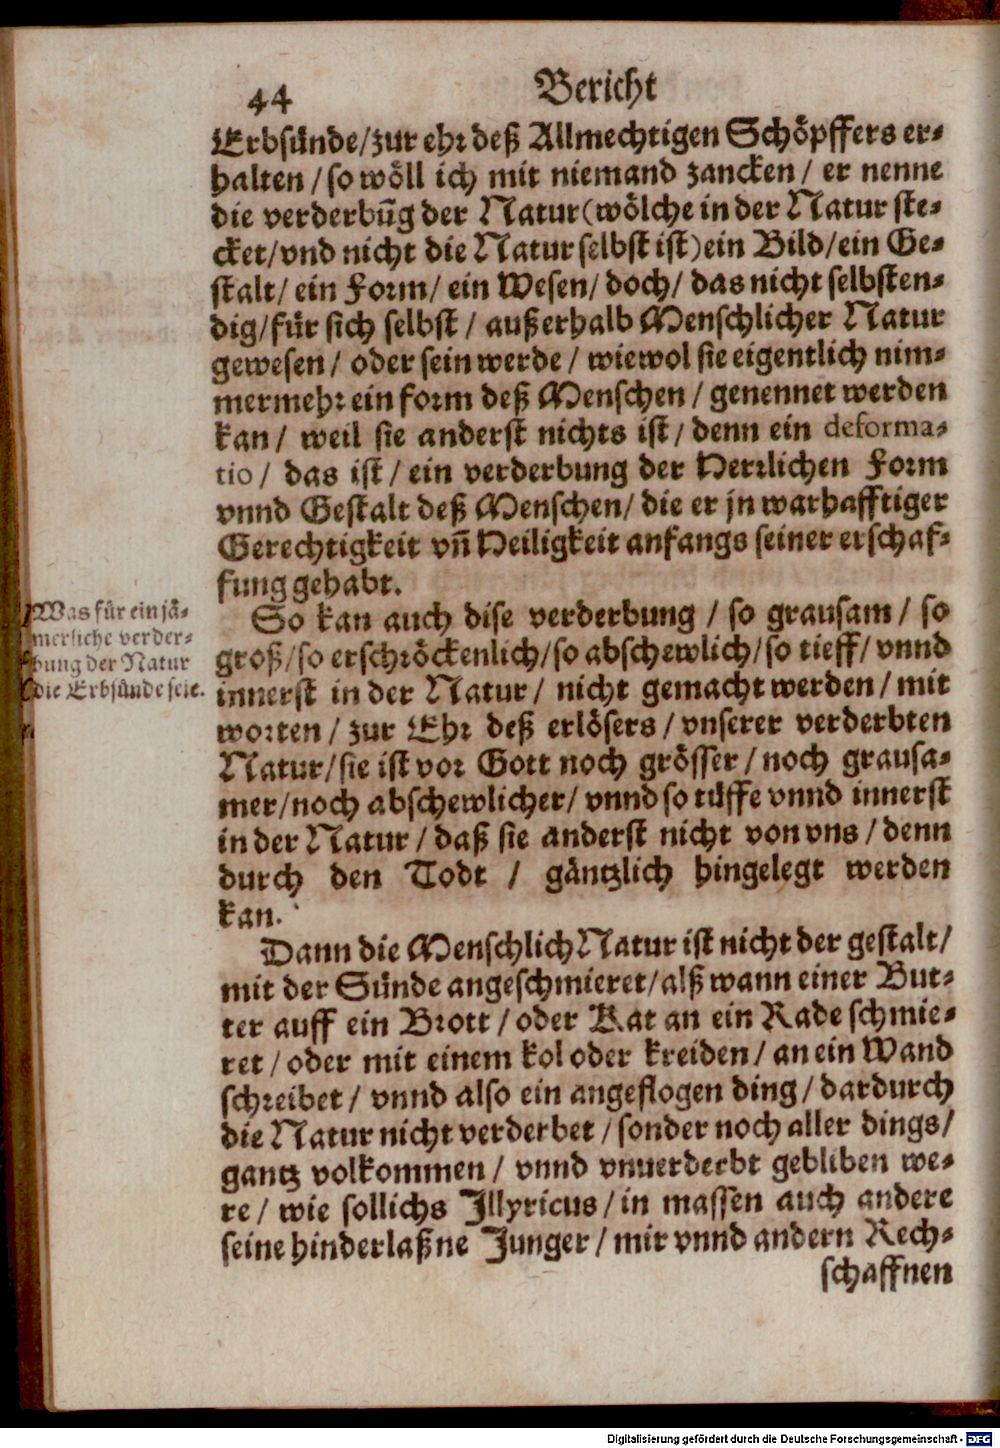 44 Bericht
Erbsünde/zur ehr deß Allmechtigen Schöpffers er-
halten / so wöll ich mit niemand zancken / er nenne
die verderbūg der Natur (wölche in der Natur ste-
cket/vnd nicht die Natur selbst ist) ein Bild/ein Ge-
stalt/ ein Form/ ein Wesen/ doch/ das nicht selbsten-
dig/für sich selbst / außerhalb Menschlicher Natur
gewesen / oder sein werde / wiewol sie eigentlich nim-
mermehr ein form deß Menschen / genennet werden
kan / weil sie anderst nichts ist / denn ein deforma-
tio / das ist / ein verderbung der Herrlichen Form
vnnd Gestalt deß Menschen/ die er jn warhafftiger
Gerechtigkeit vn̄ Heiligkeit anfangs seiner erschaf-
fung gehabt.
Was für ein jä-
merliche verder-
bung der Natur
die Erbsünde seie.
So kan auch dise verderbung / so grausam / so
groß/so erschröckenlich/so abschewlich/so tieff/ vnnd
innerst in der Natur / nicht gemacht werden / mit
worten / zur Ehr deß erlösers / vnserer verderbten
Natur/sie ist vor Gott noch grösser / noch grausa-
mer/noch abschewlicher/ vnnd so tüffe vnnd innerst
in der Natur / daß sie anderst nicht von vns / denn
durch den Todt / gäntzlich hingelegt werden
kan.
Dann die Menschlich Natur ist nicht der gestalt/
mit der Sünde angeschmieret/alß wann einer But-
ter auff ein Brott / oder Kat an ein Rade schmie-
ret / oder mit einem kol oder kreiden / an ein Wand
schreibet / vnnd also ein angeflogen ding / dardurch
die Natur nicht verderbet / sonder noch aller dings/
gantz volkommen / vnnd vnuerderbt gebliben we-
re / wie sollichs Jllyricus / in massen auch andere
seine hinderlaßne Junger / mir vnnd andern Rech-
schaffnen
Digitalisierung gefördert durch die Deutsche Forschungsgemeinschaft - DFG